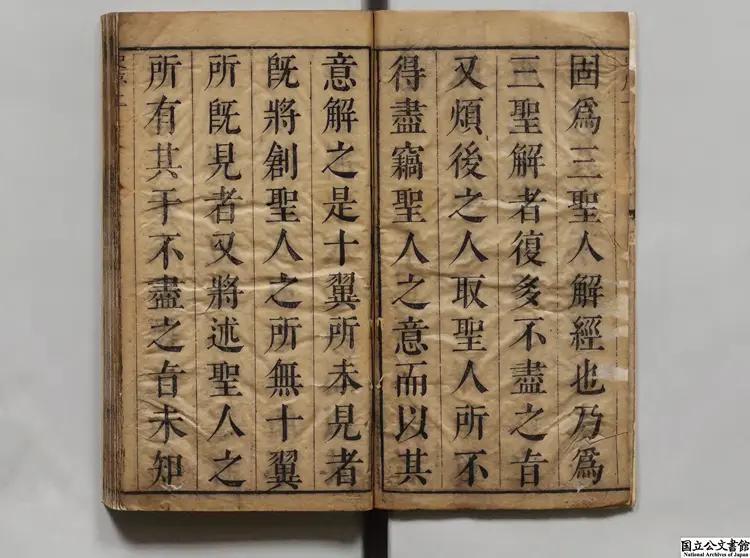 固爲三聖人解經也乃爲
三聖解者復多不盡之㫖
又煩後之人取聖人所不
得盡竊聖人之意而以其
意解之是十翼所未見者
旣將創聖人之所無十翼
所旣見者又將述聖人之
所有其于不盡之㫖未知
国立公文書館
National Archives of Japan